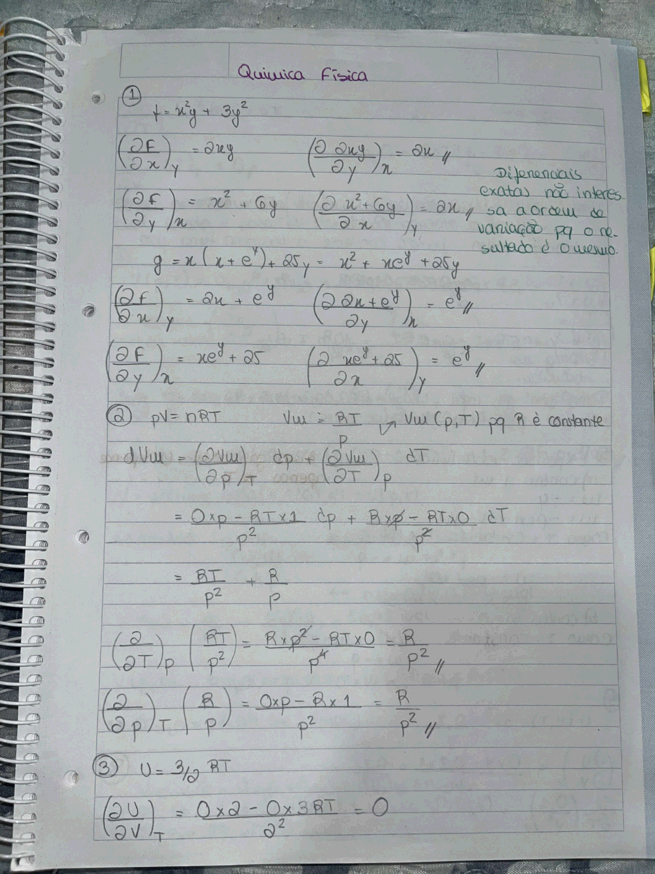 Quimica Física
① f = x²y + 3y²
(∂F/∂x)y = 2xy (∂ 2xy/∂y)x = 2x //
(∂F/∂y)x = x² + 6y (∂ x²+6y/∂x)y = 2x //
Diferenciais
exatas não interes
sa a ordem de
variação pq o re-
sultado é o mesmo.
g = x(x + e^y) + 25y = x² + xe^y + 25y
(∂F/∂x)y = 2x + e^y (∂ 2x+e^y/∂y)x = e^y //
(∂F/∂y)x = xe^y + 25 (∂ xe^y+25/∂x)y = e^y //
② pV = nRT Vm = RT/p ↳ Vm (p,T) pq R é constante
dVm = (∂Vm/∂p)T dp + (∂Vm/∂T)p dT
= 0×p − RT×1/p² dp + R×p − RT×0/p² dT
= RT/p² + R/p
(∂/∂T)p (RT/p²) = R×p² − RT×0/p⁴ = R/p² //
(∂/∂p)T (R/p) = 0×p − R×1/p² = R/p² //
③ U = 3/2 RT
(∂U/∂V)T = 0×2 − 0×3RT/2² = 0